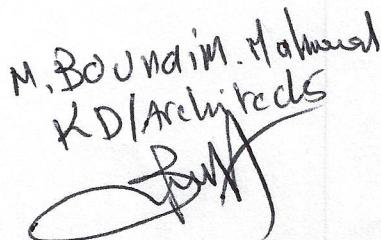 M. BOUNAIM. Mahmoud
KD/Architects